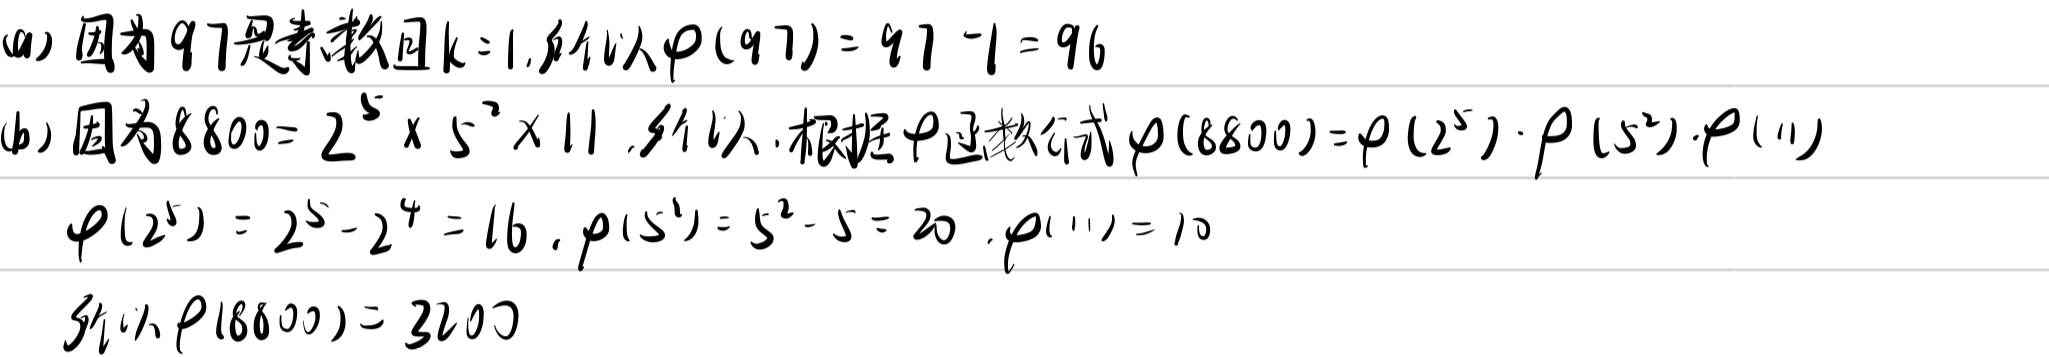 (a) 因为97是素数且k=1,所以φ(97)=97-1=96
(b) 因为8800=2⁵×5²×11,所以,根据φ函数公式φ(8800)=φ(2⁵)·φ(5²)·φ(11)
φ(2⁵)=2⁵-2⁴=16,φ(5²)=5²-5=20,φ(11)=10
所以φ(8800)=3200